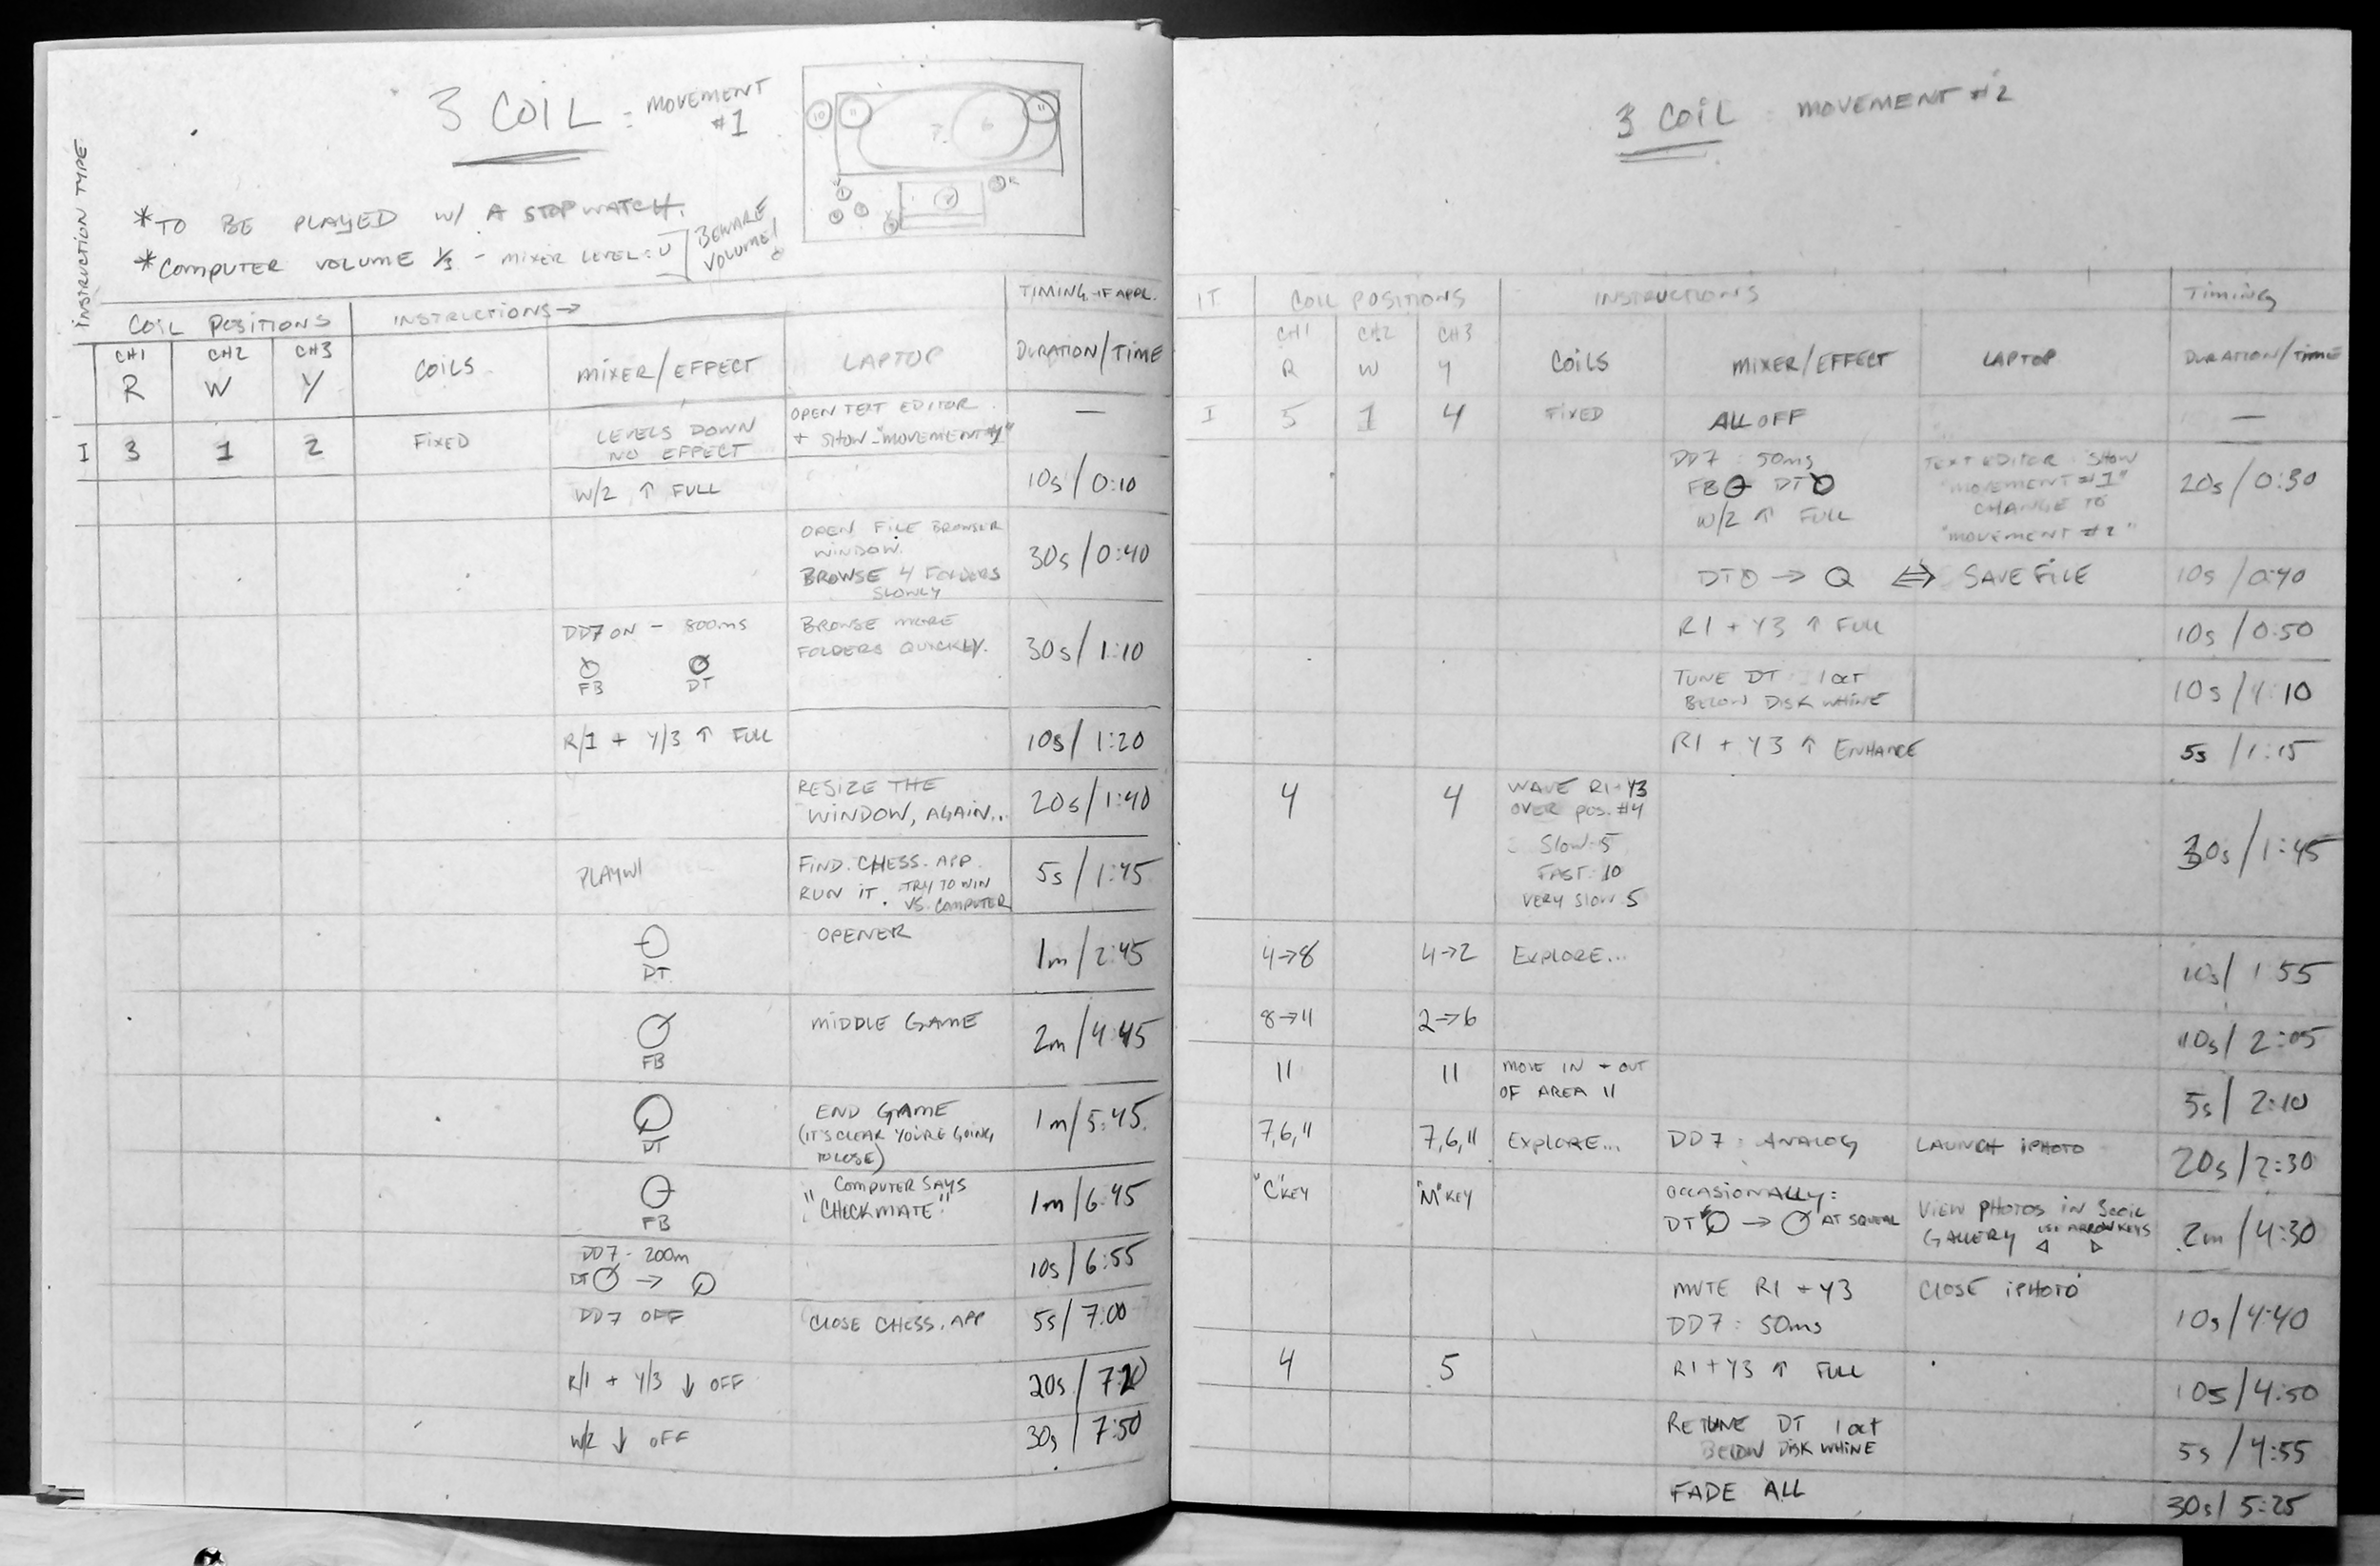 INSTRUCTION TYPE
3 COIL : MOVEMENT #1
*TO BE PLAYED W/ A STOPWATCH.
*COMPUTER VOLUME 1/3 - MIXER LEVEL: U
BEWARE VOLUME!
COIL POSITIONS INSTRUCTIONS→ TIMING-IF APPL.
CH1 CH2 CH3
R W Y COILS MIXER/EFFECT LAPTOP DURATION/TIME
I 3 1 2 FIXED LEVELS DOWN NO EFFECT OPEN TEXT EDITOR + SHOW "MOVEMENT #1" —
W/2 ↑ FULL 10s/0:10
OPEN FILE BROWSER WINDOW. BROWSE 4 FOLDERS SLOWLY 30s/0:40
DD7 ON - 800ms FB DT BROWSE MORE FOLDERS QUICKLY. 30s/1:10
R/1 + Y/3 ↑ FULL 10s/1:20
RESIZE THE WINDOW, AGAIN... 20s/1:40
FIND CHESS.APP. RUN IT. TRY TO WIN VS. COMPUTER 5s/1:45
DT OPENER 1m/2:45
FB MIDDLE GAME 2m/4:45
DT END GAME (IT'S CLEAR YOU'RE GOING TO LOSE) 1m/5:45
FB COMPUTER SAYS "CHECKMATE" 1m/6:45
DD7 - 200m DT → 10s/6:55
DD7 OFF CLOSE CHESS.APP 5s/7:00
R/1 + Y/3 ↓ OFF 20s/7:20
W/2 ↓ OFF 30s/7:50
3 COIL : MOVEMENT #2
IT COIL POSITIONS INSTRUCTIONS TIMING
CH1 CH2 CH3
R W Y COILS MIXER/EFFECT LAPTOP DURATION/TIME
I 5 1 4 FIXED ALL OFF —
DD7 : 50ms FB DT W/2 ↑ FULL TEXT EDITOR : SHOW "MOVEMENT #1" CHANGE TO "MOVEMENT #2" 20s/0:30
DT → ⇔ SAVE FILE 10s/0:40
R1 + Y3 ↑ FULL 10s/0:50
TUNE DT 1 OCT BELOW DISK WHINE 10s/1:10
R1 + Y3 ↑ ENHANCE 5s/1:15
4 4 WAVE R1+Y3 OVER POS. #4 SLOW: 5 FAST: 10 VERY SLOW 5 30s/1:45
4→8 4→2 EXPLORE... 10s/1:55
8→11 2→6 10s/2:05
11 11 MOVE IN + OUT OF AREA 11 5s/2:10
7,6,11 7,6,11 EXPLORE... DD7 : ANALOG LAUNCH iPHOTO 20s/2:30
"C" KEY "M" KEY OCCASIONALLY: DT → AT SQUEAL VIEW PHOTOS IN 3COIL GALLERY USE ARROW KEYS 2m/4:30
MUTE R1 + Y3 DD7 : 50ms CLOSE iPHOTO 10s/4:40
4 5 R1+Y3 ↑ FULL 10s/4:50
RETUNE DT 1 OCT BELOW DISK WHINE 5s/4:55
FADE ALL 30s/5:25